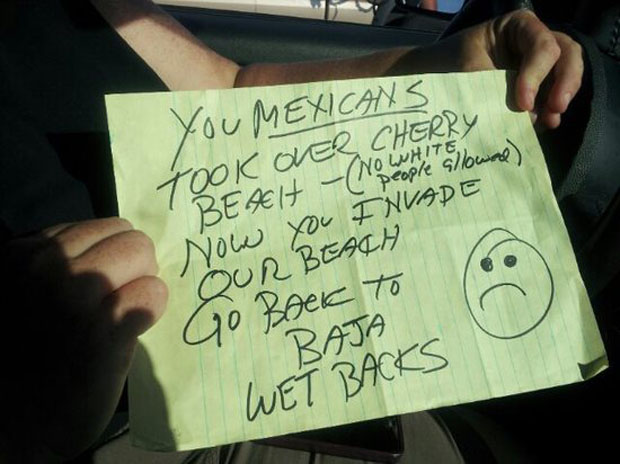 You MEXICANS
TOOK OVER CHERRY
BEACH - (NO WHITE
people allowed)
NOW YOU INVADE
OUR BEACH
GO BACK TO
BAJA
WET BACKS